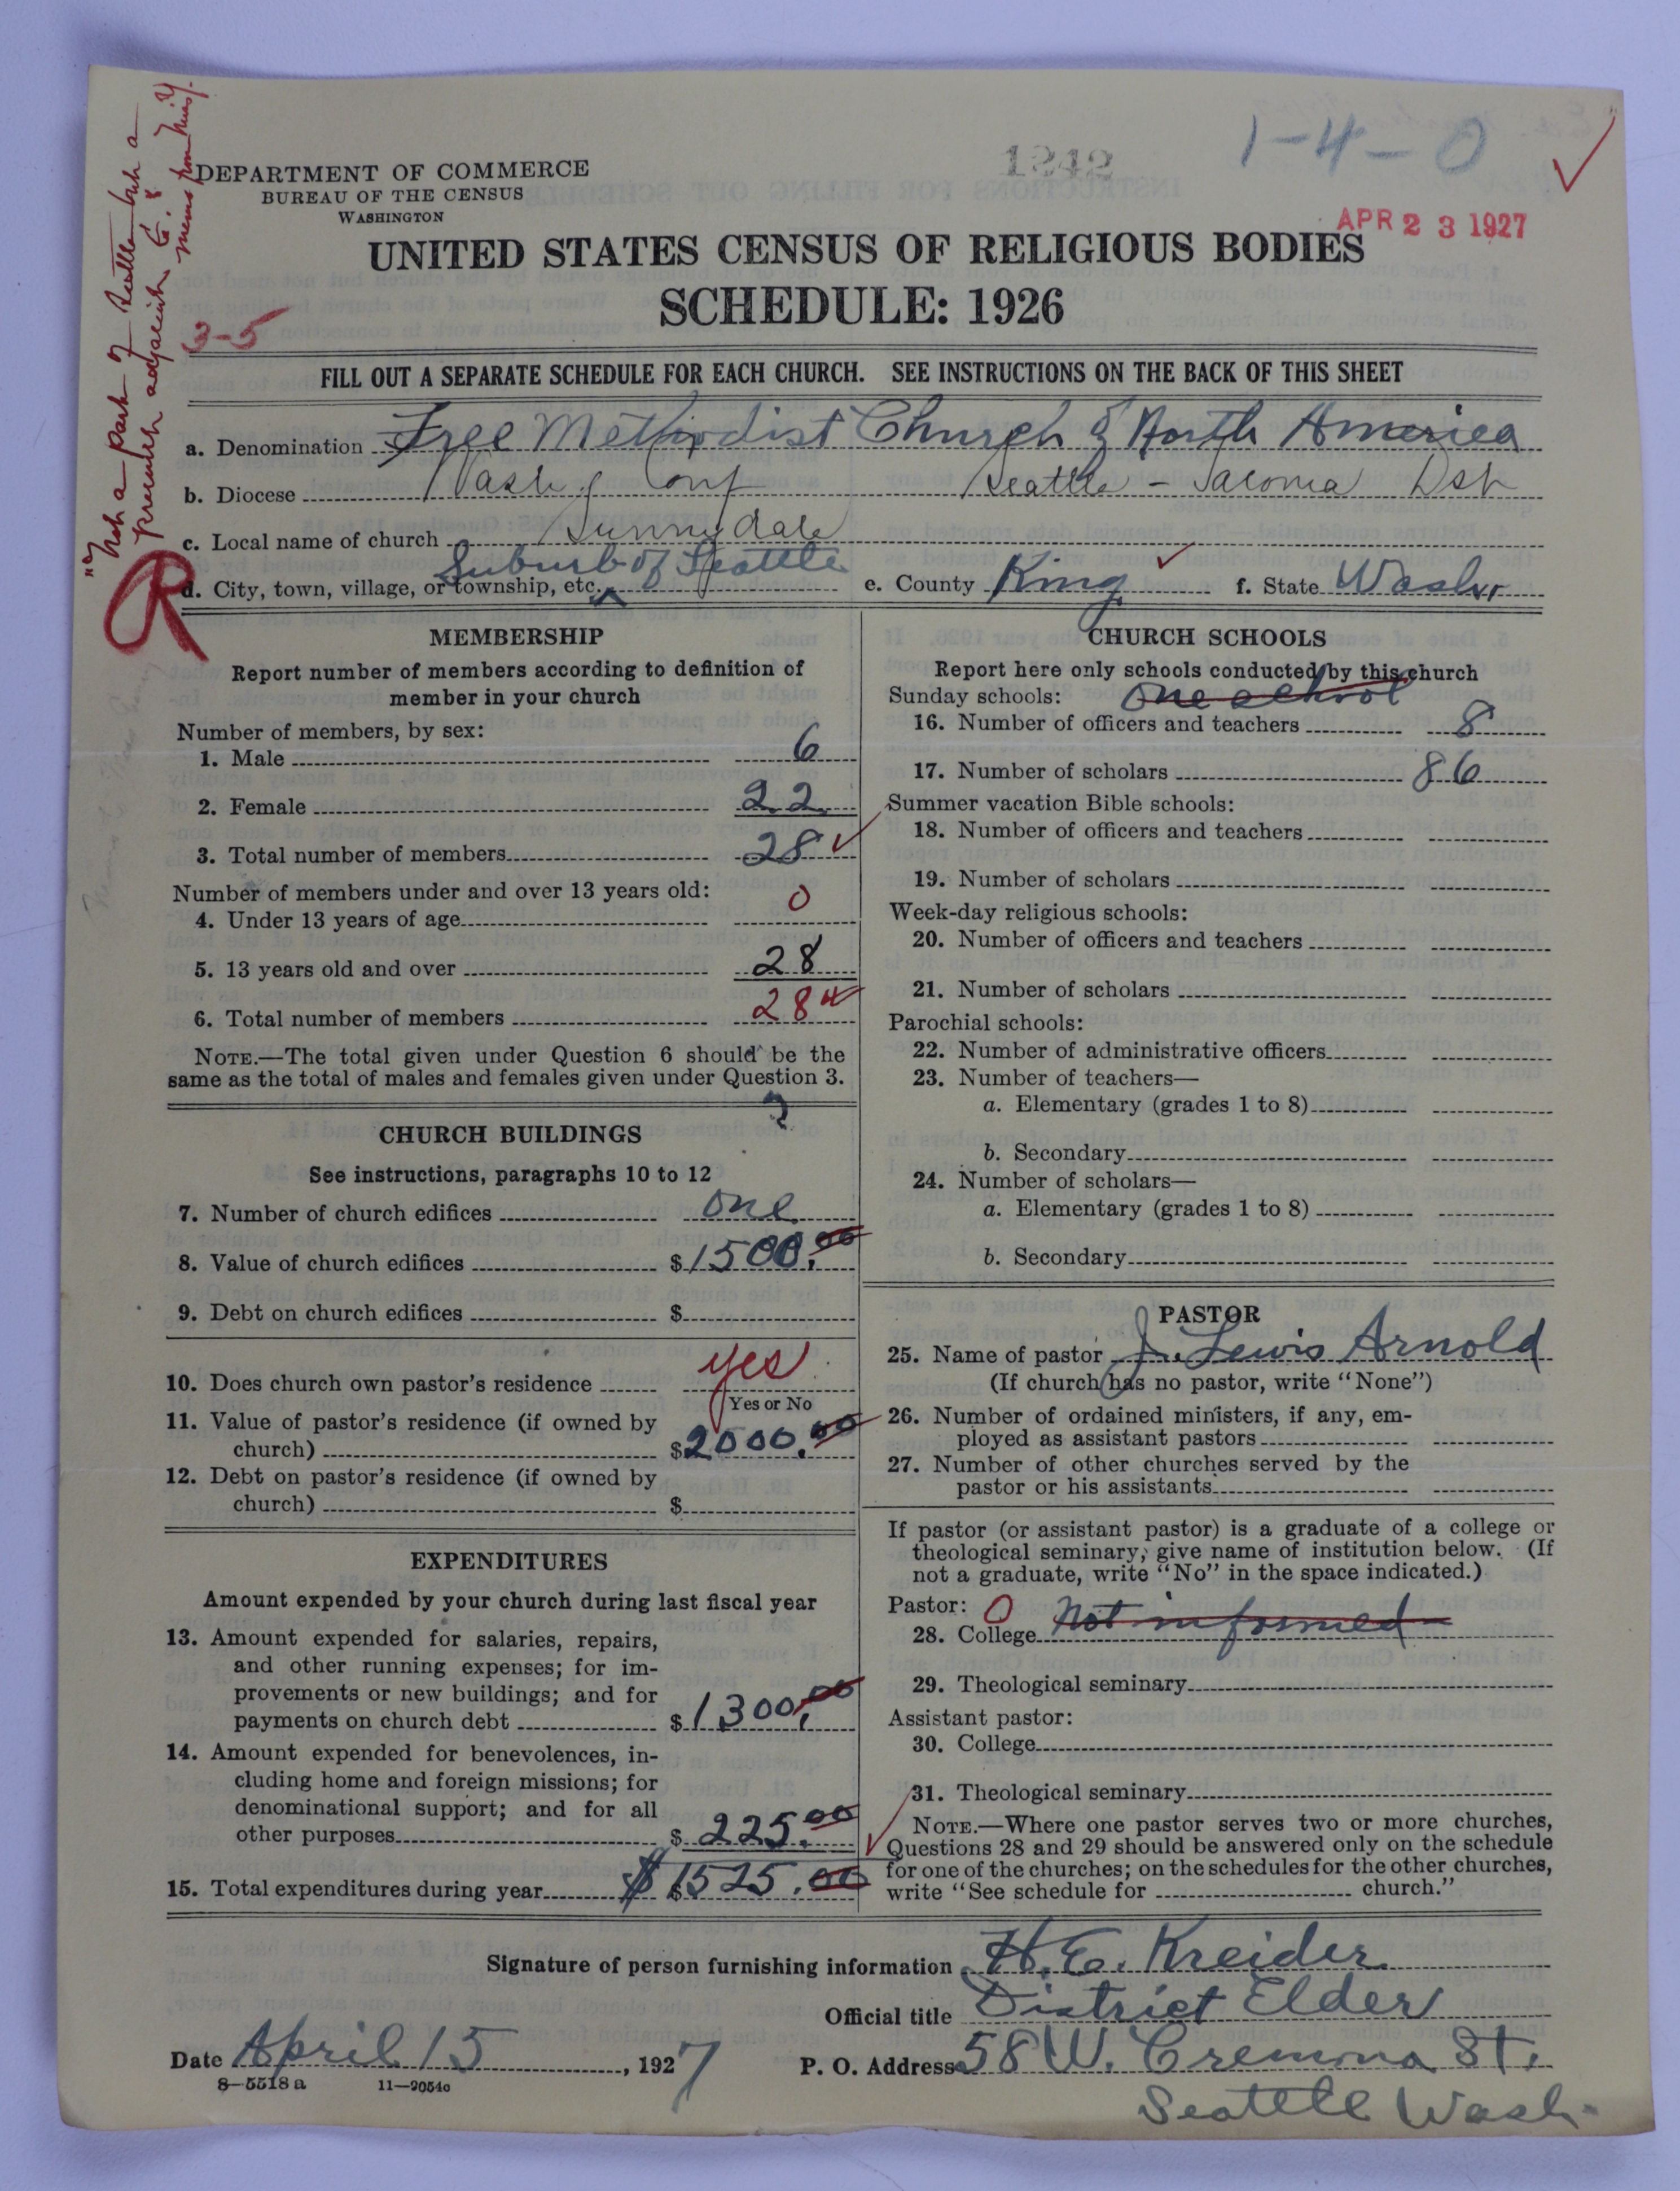 1242
1-4-0
DEPARTMENT OF COMMERCE
BUREAU OF THE CENSUS
WASHINGTON
APR 23 1927
UNITED STATES CENSUS OF RELIGIOUS BODIES
SCHEDULE: 1926
3-5
"Not a part of Seattle but a
FILL OUT A SEPARATE SCHEDULE FOR EACH CHURCH. SEE INSTRUCTIONS ON THE BACK OF THIS SHEET
a. Denomination Free Methodist Church of North America
b. Diocese Wash. Conf Seattle - Tacoma Dst
c. Local name of church Sunnydale
R
d. City, town, village, or township, etc. Suburb of Seattle e. County King f. State Wash.
MEMBERSHIP
Report number of members according to definition of
member in your church
Number of members, by sex:
1. Male 6
2. Female 22
3. Total number of members 28
Number of members under and over 13 years old:
4. Under 13 years of age 0
5. 13 years old and over 28
6. Total number of members 28
NOTE.—The total given under Question 6 should be the
same as the total of males and females given under Question 3.
CHURCH BUILDINGS
See instructions, paragraphs 10 to 12
7. Number of church edifices one
8. Value of church edifices $1500.00
9. Debt on church edifices $
10. Does church own pastor's residence yes
Yes or No
11. Value of pastor's residence (if owned by
church) $2000.00
12. Debt on pastor's residence (if owned by
church) $
EXPENDITURES
Amount expended by your church during last fiscal year
13. Amount expended for salaries, repairs,
and other running expenses; for im-
provements or new buildings; and for
payments on church debt $1300.00
14. Amount expended for benevolences, in-
cluding home and foreign missions; for
denominational support; and for all
other purposes $225.00
15. Total expenditures during year $ $1525.00
CHURCH SCHOOLS
Report here only schools conducted by this church
Sunday schools: One school
16. Number of officers and teachers 8
17. Number of scholars 86
Summer vacation Bible schools:
18. Number of officers and teachers
19. Number of scholars
Week-day religious schools:
20. Number of officers and teachers
21. Number of scholars
Parochial schools:
22. Number of administrative officers
23. Number of teachers—
a. Elementary (grades 1 to 8)
b. Secondary
24. Number of scholars—
a. Elementary (grades 1 to 8)
b. Secondary
PASTOR
25. Name of pastor J. Lewis Arnold
(If church has no pastor, write "None")
26. Number of ordained ministers, if any, em-
ployed as assistant pastors
27. Number of other churches served by the
pastor or his assistants
If pastor (or assistant pastor) is a graduate of a college or
theological seminary, give name of institution below. (If
not a graduate, write "No" in the space indicated.)
Pastor: 0
28. College Not informed
29. Theological seminary
Assistant pastor:
30. College
31. Theological seminary
NOTE.—Where one pastor serves two or more churches,
Questions 28 and 29 should be answered only on the schedule
for one of the churches; on the schedules for the other churches,
write "See schedule for church."
Signature of person furnishing information H. E. Kreider
Official title District Elder
Date April 15, 1927
P. O. Address 58 W. Cremona St.
Seattle Wash.
8-5518a 11-9054c